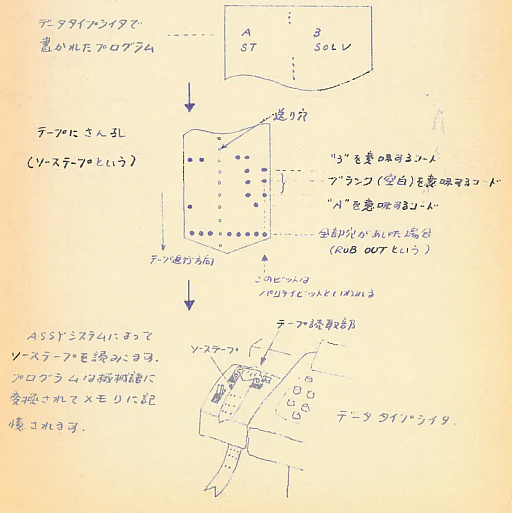 データタイプライタで
書かれたプログラム
A B
ST SOLV
送り穴
テープに さん孔
(ソーステープという)
"3"を意味するコード
ブランク(空白)を意味するコード
"A"を意味するコード
全部穴があいた場合
(RUB OUTという)
テープ進行方向
このビットは
パリティビットといわれる
ASSYシステムによって
ソーステープを読みこます.
プログラムは機械語に
変換されてメモリに記
憶されます.
テープ読取部
ソーステープ
データ タイプライタ.